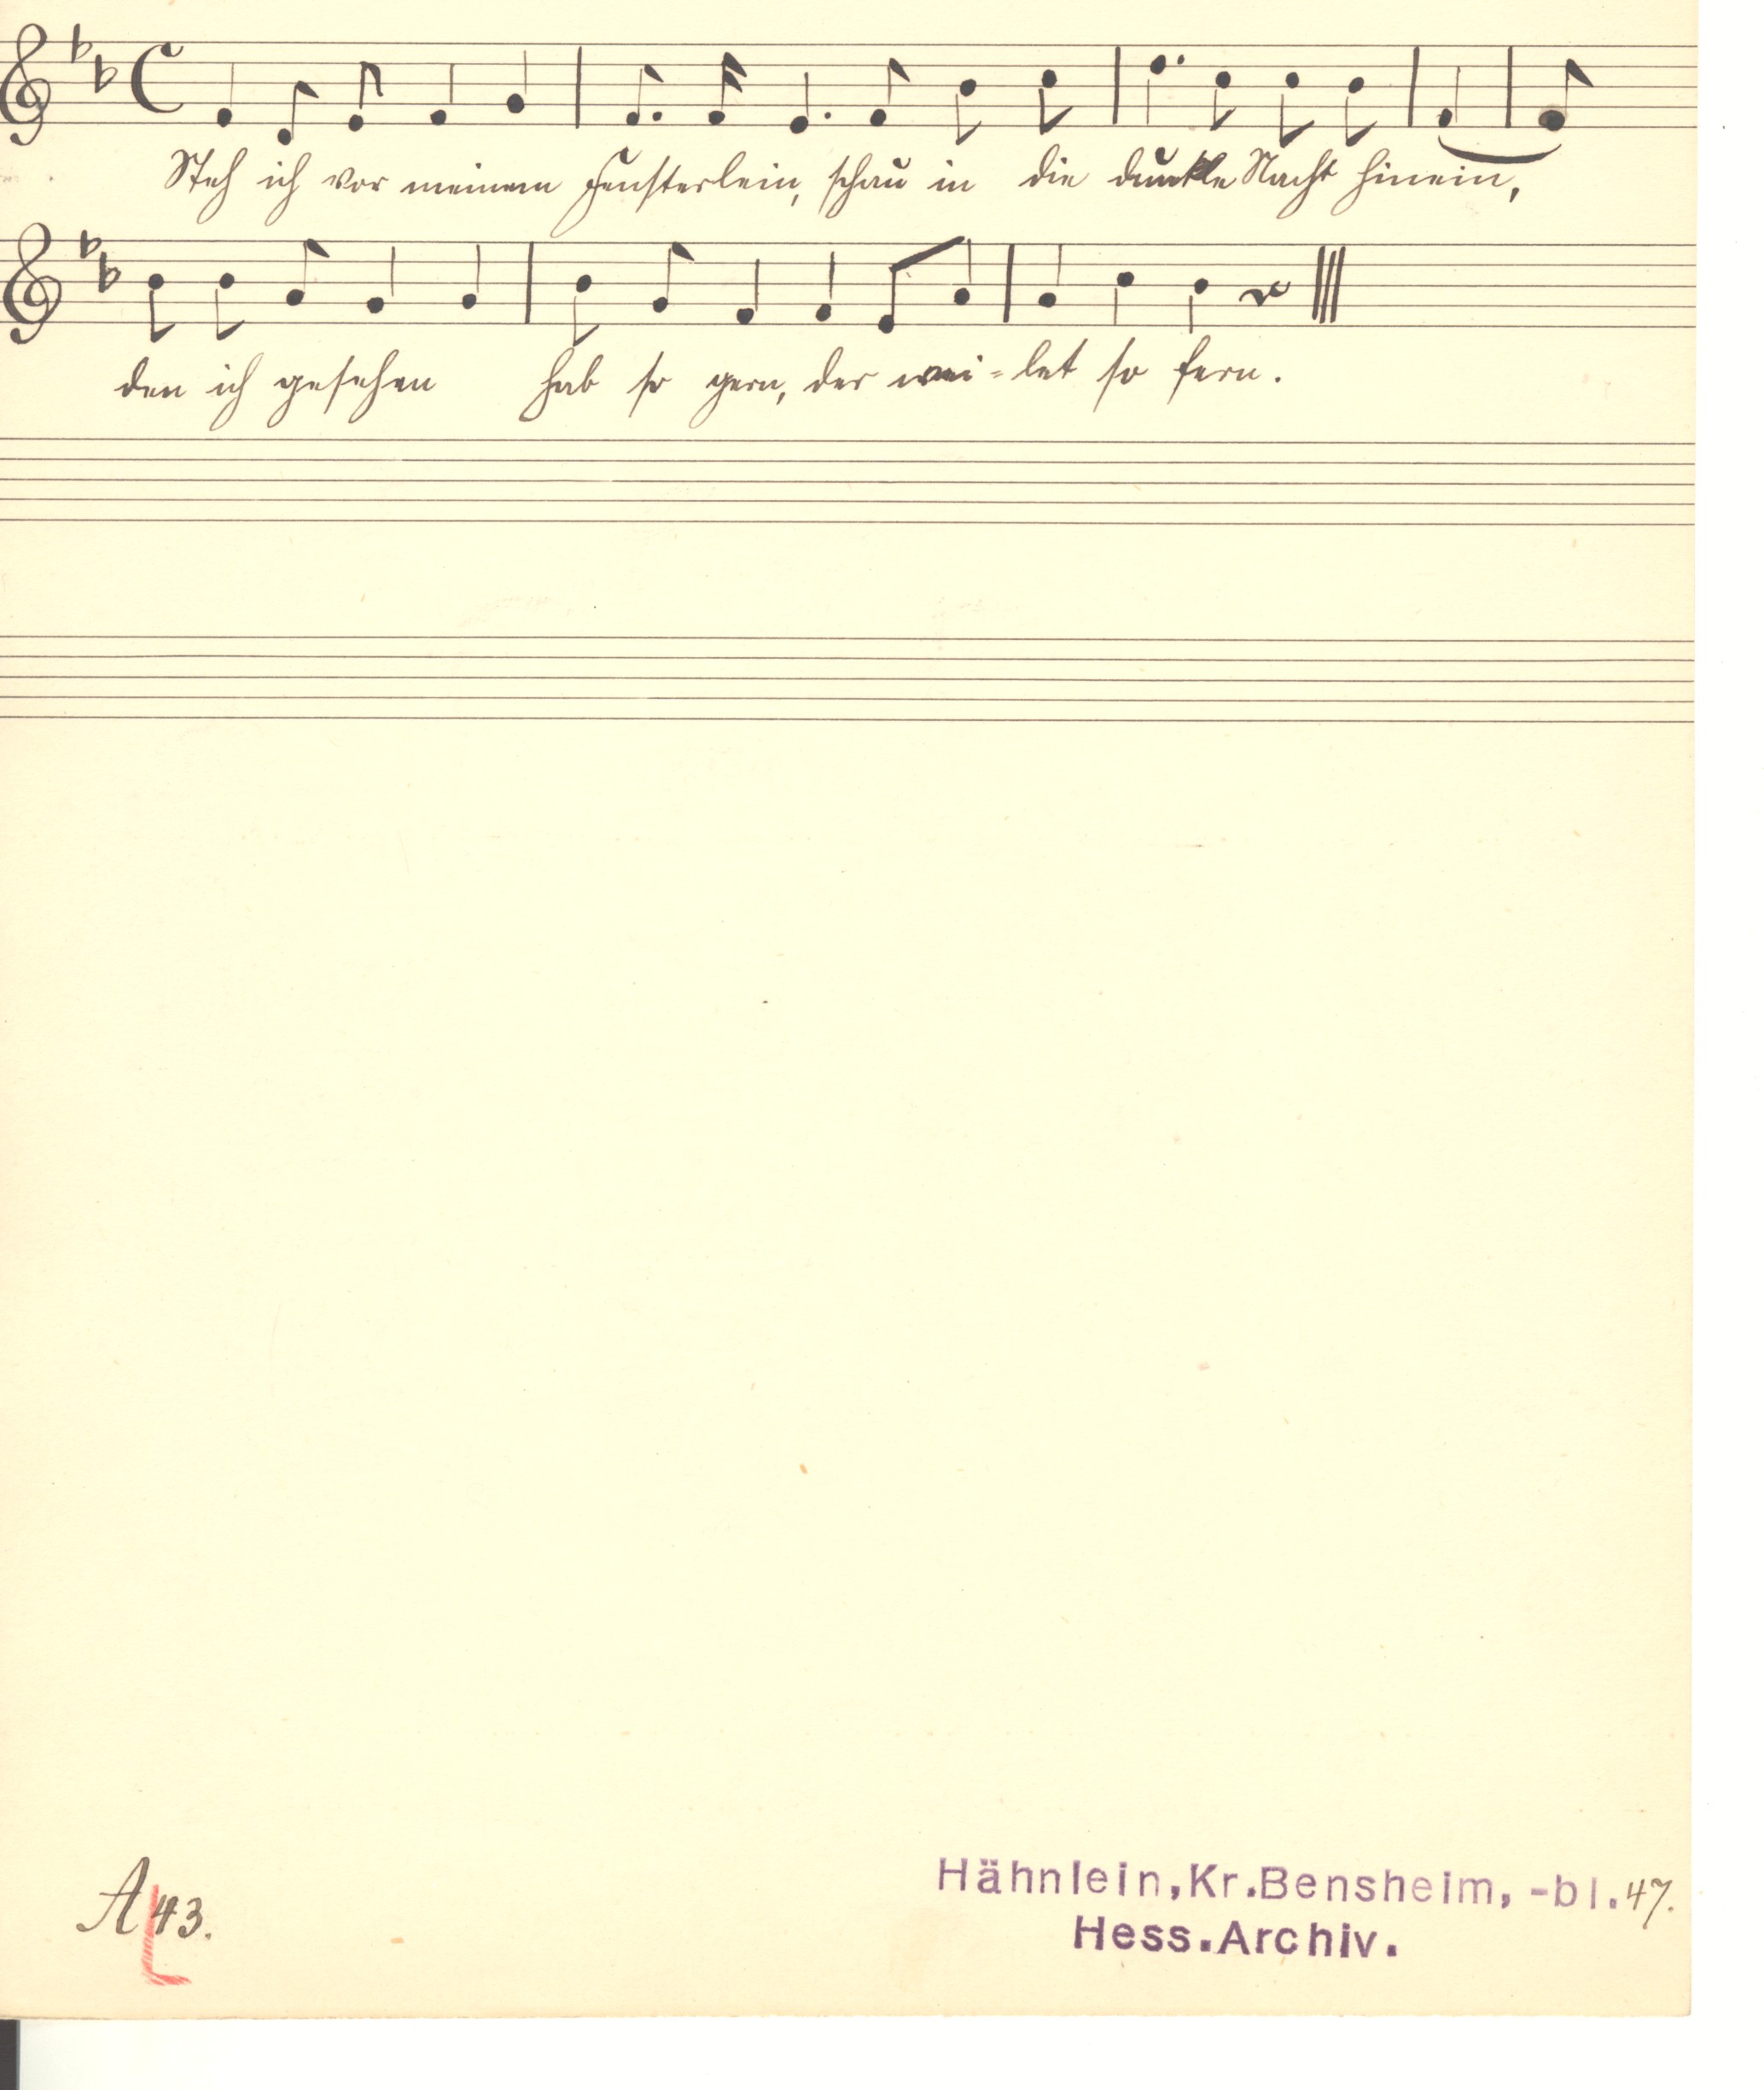 Steh ich vor meinem Fensterlein, schau in die dunkle Nacht hinein,
den ich gesehen hab so gern, der wei-let so fern.
A 43.
Hähnlein,Kr.Bensheim, -bl.47.
Hess.Archiv.